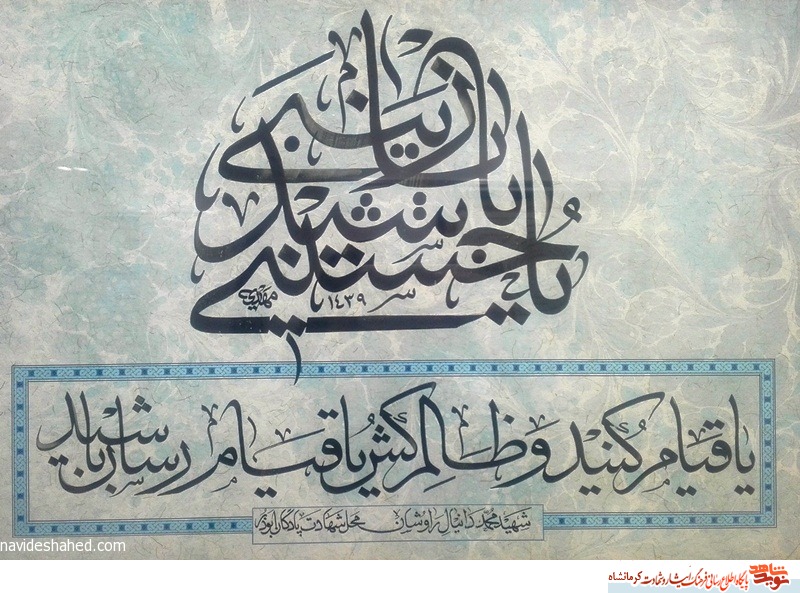 یا حسینی باشید یا زینبی
١٤٣٩
یا قیام کنید و ظالم کش یا قیام رسان باشید
شهید محمد دانیال راوشان محل شهادت پادگان ابوذر
navideshahed.com
نوید شاهد پایگاه اطلاع رسانی فرهنگ ایثار و شهادت کرمانشاه